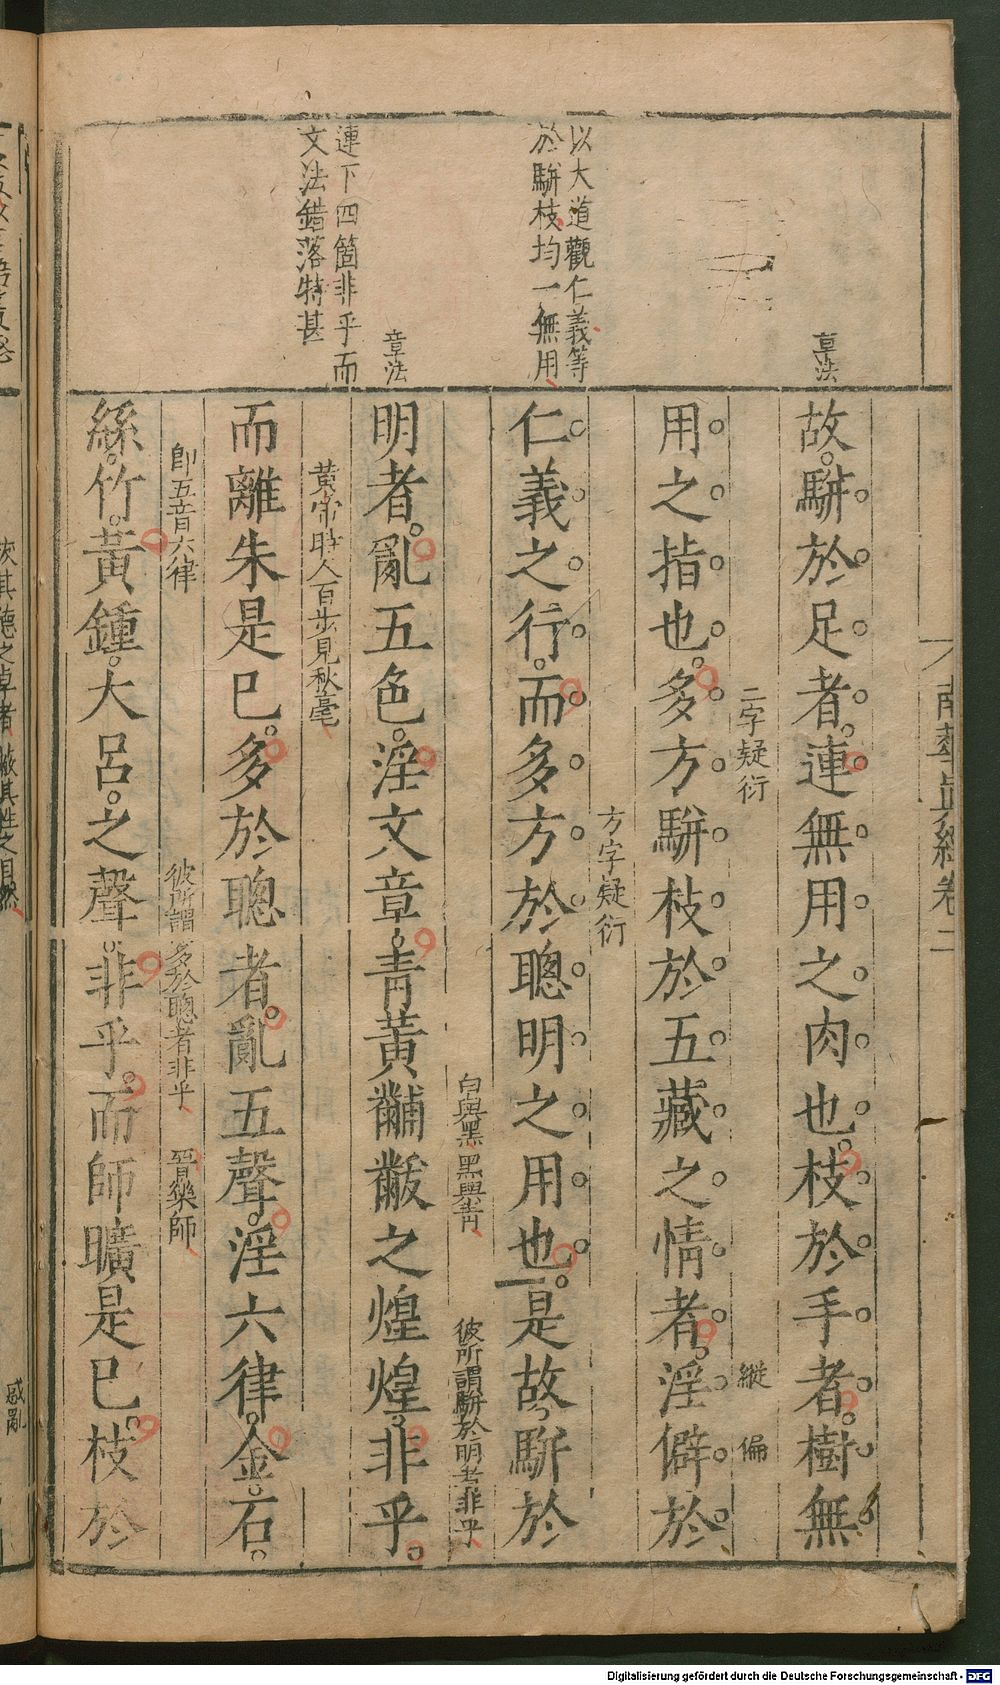 章法
以大道觀仁義等
於駢枝均一無用
章法
連下四箇非乎而
文法錯落特甚
故駢於足者連無用之肉也枝於手者樹無
二字疑衍
縱
偏
用之指也多方駢枝於五藏之情者淫僻於
方字疑衍
仁義之行而多方於聰明之用也是故駢於
白與黑黑與青
彼所謂駢於明者非乎
明者亂五色淫文章青黃黼黻之煌煌非乎
黃帝時人百步見秋毫
而離朱是巳多於聰者亂五聲淫六律金石
卽五音六律
彼所謂多於聰者非乎
晉樂師
絲竹黃鍾大呂之聲非乎而師曠是巳枝於
南華眞經卷二
惑亂
Digitalisierung gefördert durch die Deutsche Forschungsgemeinschaft - DFG